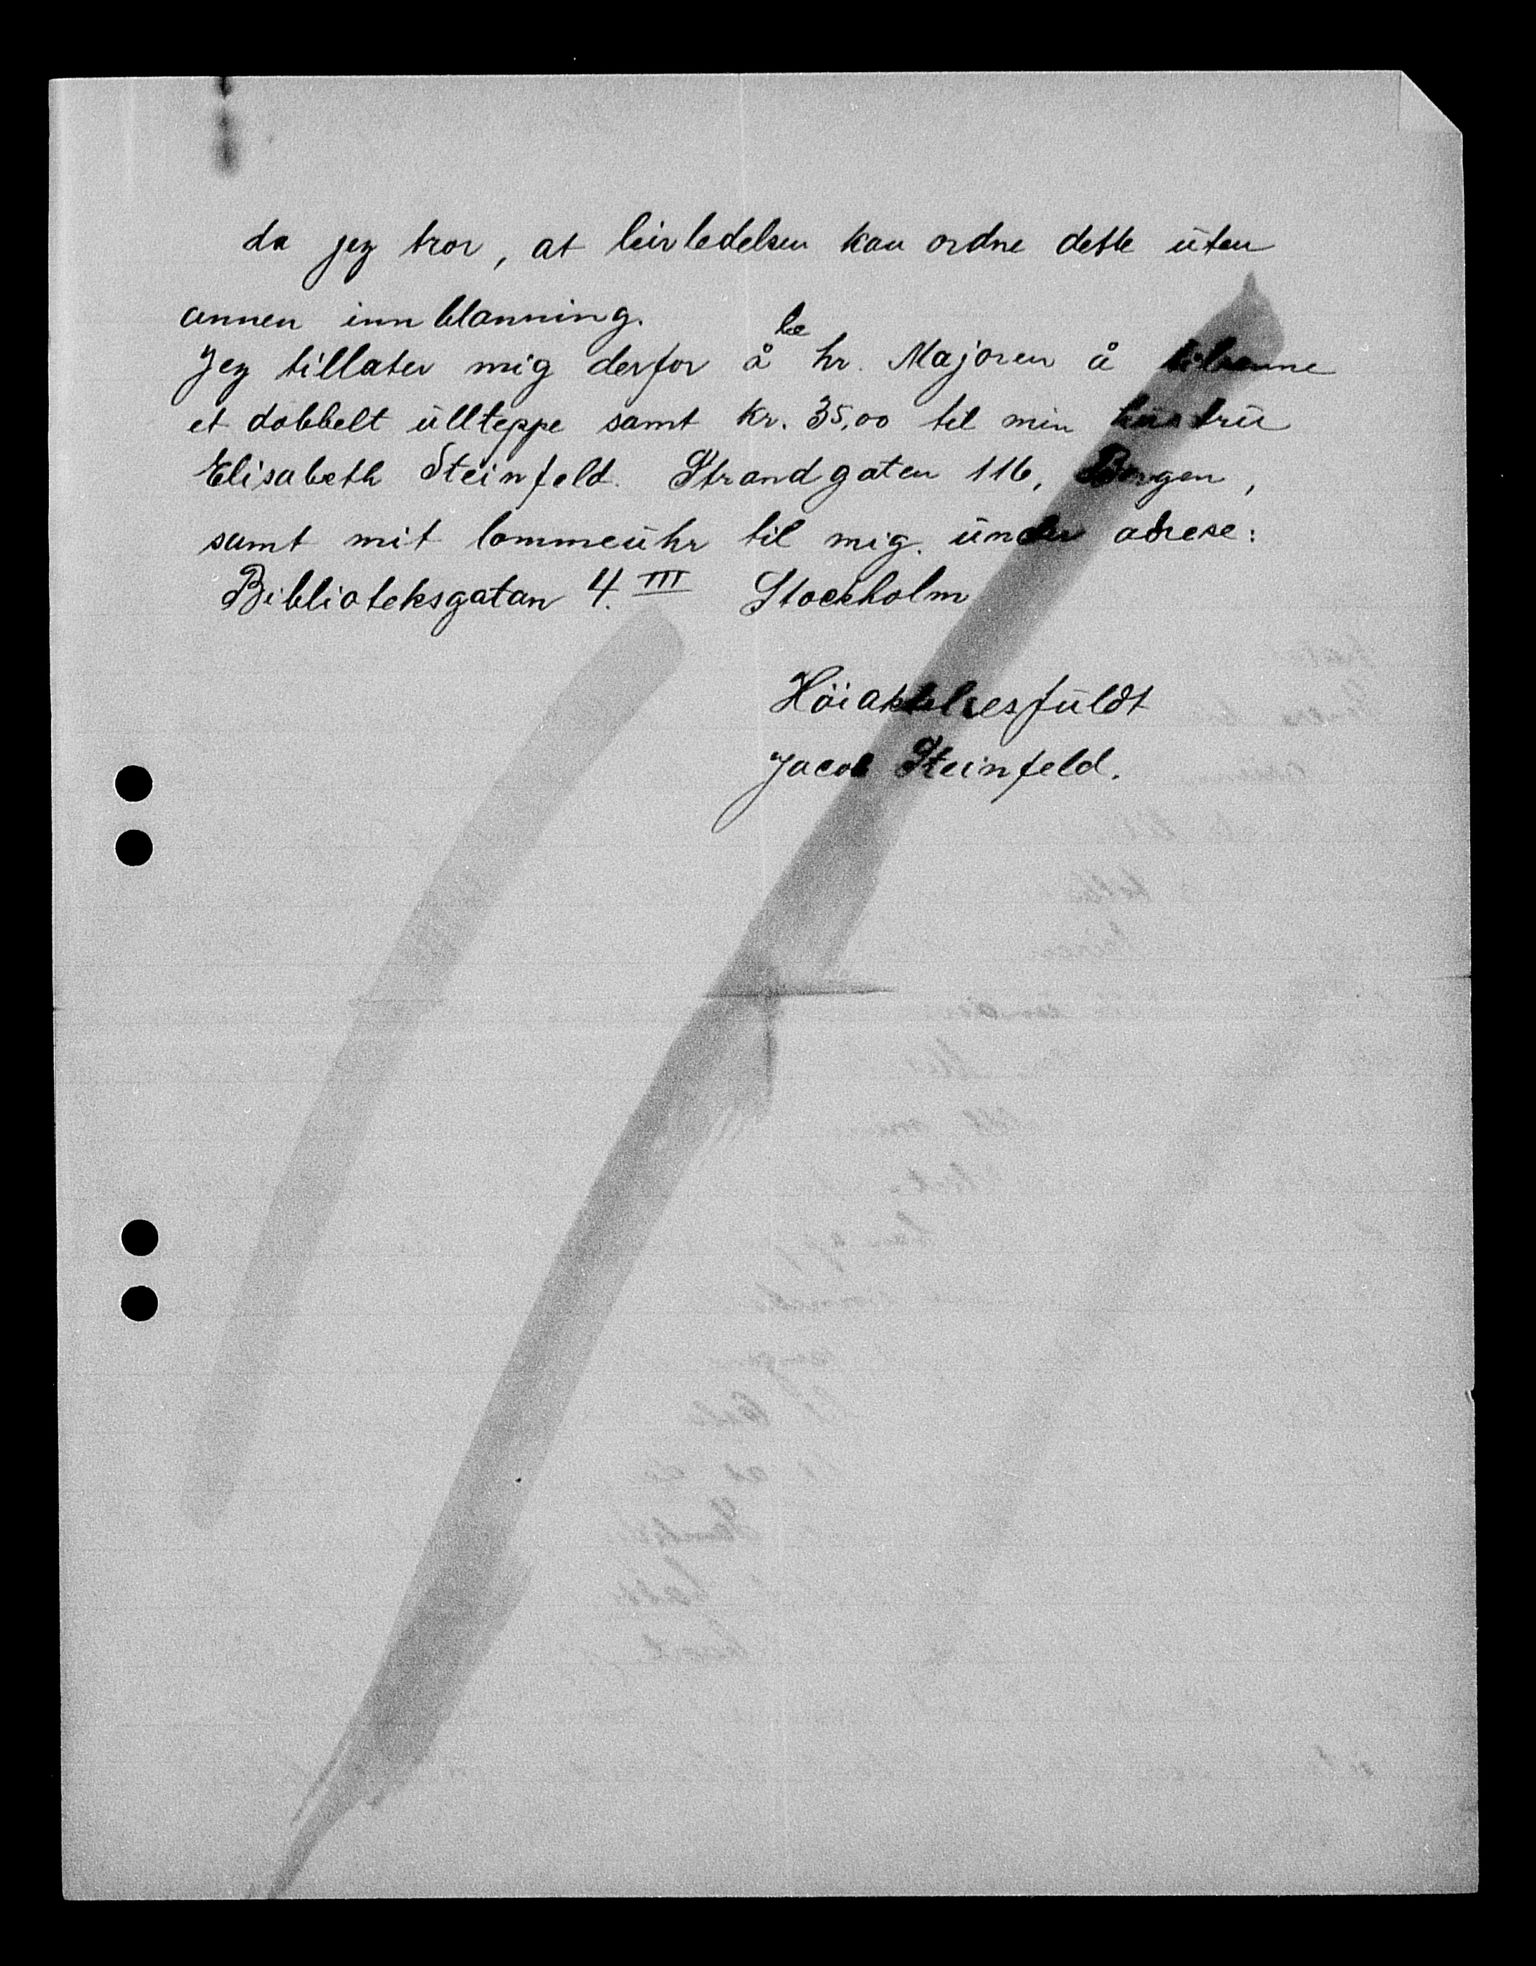 da jeg tror, at leirledelsen kan ordne dette uten
annen innblanning.
Jeg tillater mig derfor å be hr. Majoren å
et dobbelt ullteppe samt kr. 35,00 til min hustru
Elisabeth Steinfeld. Strandgaten 116, Bergen,
samt mit lommeuhr til mig. under adrese:
Biblioteksgatan 4. III Stockholm
Höiaktelsesfuldt
Jacob Steinfeld.